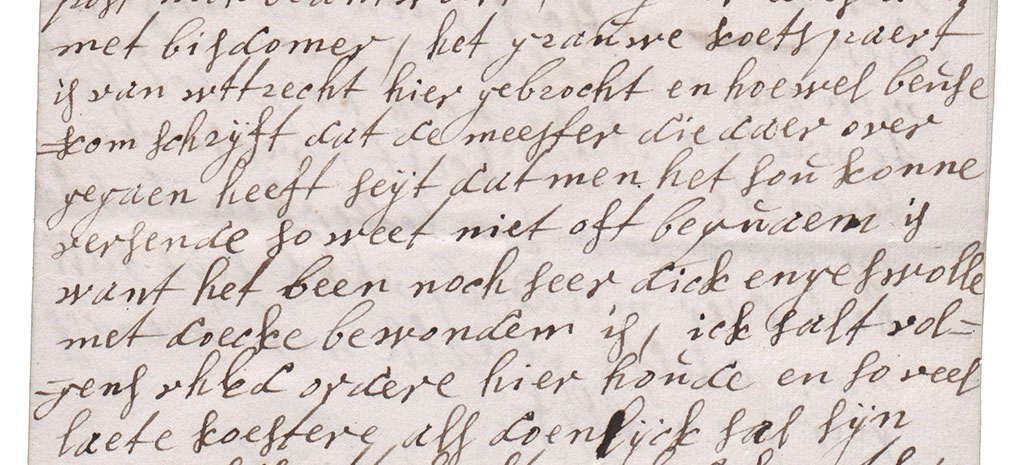 met bisdomer, het grauwe koets paert
is van wttrecht hier gebrocht en hoewel beuse
=kom schryft dat de meester die daer over
gegaen heeft seyt dat men het sou konne
versende so weet niet oft bequaem is
want het been noch seer dick en geswolle
met doecke bewonden is, ick salt vol=
=gens uhEd ordere hier houde en so veel
laete koestere als doenlyck sal syn